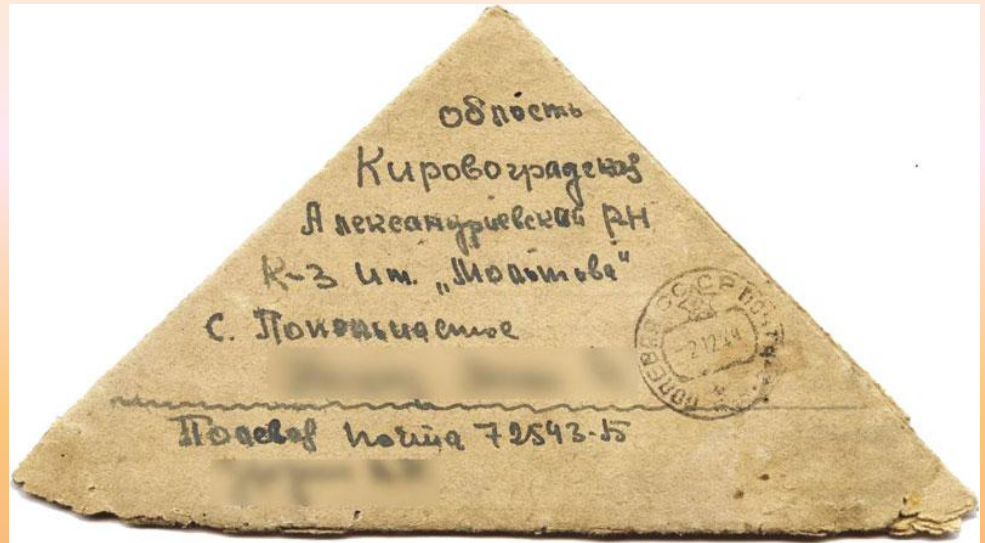 область
Кировоградская
Александриевский РН
К-з им. „Молотова"
С.
Полевая почта 72543-Б
ПОЛЕВАЯ ПОЧТА СССР
-2 12 44